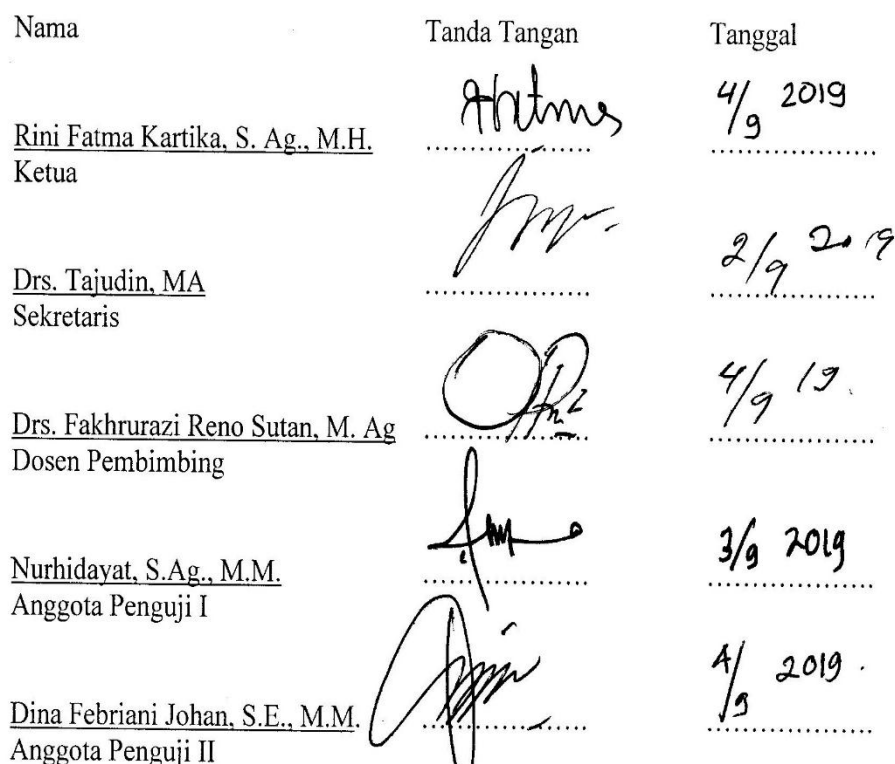 Nama Tanda Tangan Tanggal
4/9 2019
Rini Fatma Kartika, S. Ag., M.H. ........................ ........................
Ketua
2/9 2019
Drs. Tajudin, MA ........................ ........................
Sekretaris
4/9 19.
Drs. Fakhrurazi Reno Sutan, M. Ag ........................ ........................
Dosen Pembimbing
3/9 2019
Nurhidayat, S.Ag., M.M. ........................ ........................
Anggota Penguji I
4/9 2019.
Dina Febriani Johan, S.E., M.M. ........................ ........................
Anggota Penguji II